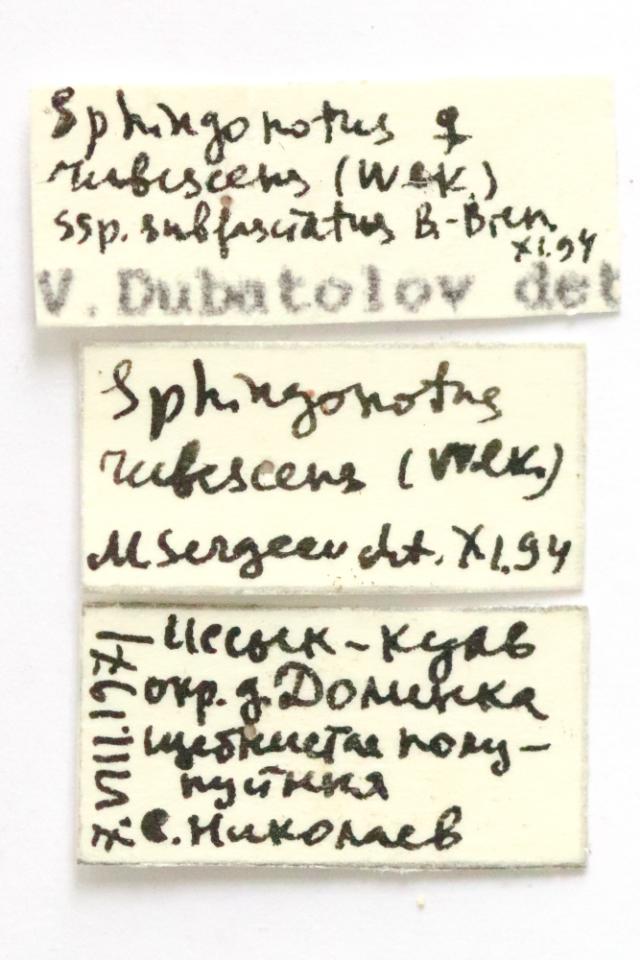 Sphingonotus ♀
rubescens (Walk.)
ssp. subfasciatus B.-Bien.
XI.94
V. Dubatolov det
Sphingonotus
rubescens (Walk.)
M Sergeev det. XI.94
Иссык-куль
окр. д. Долинка
щебнистая полу-
пустыня
С. Николаев
VIII.1971